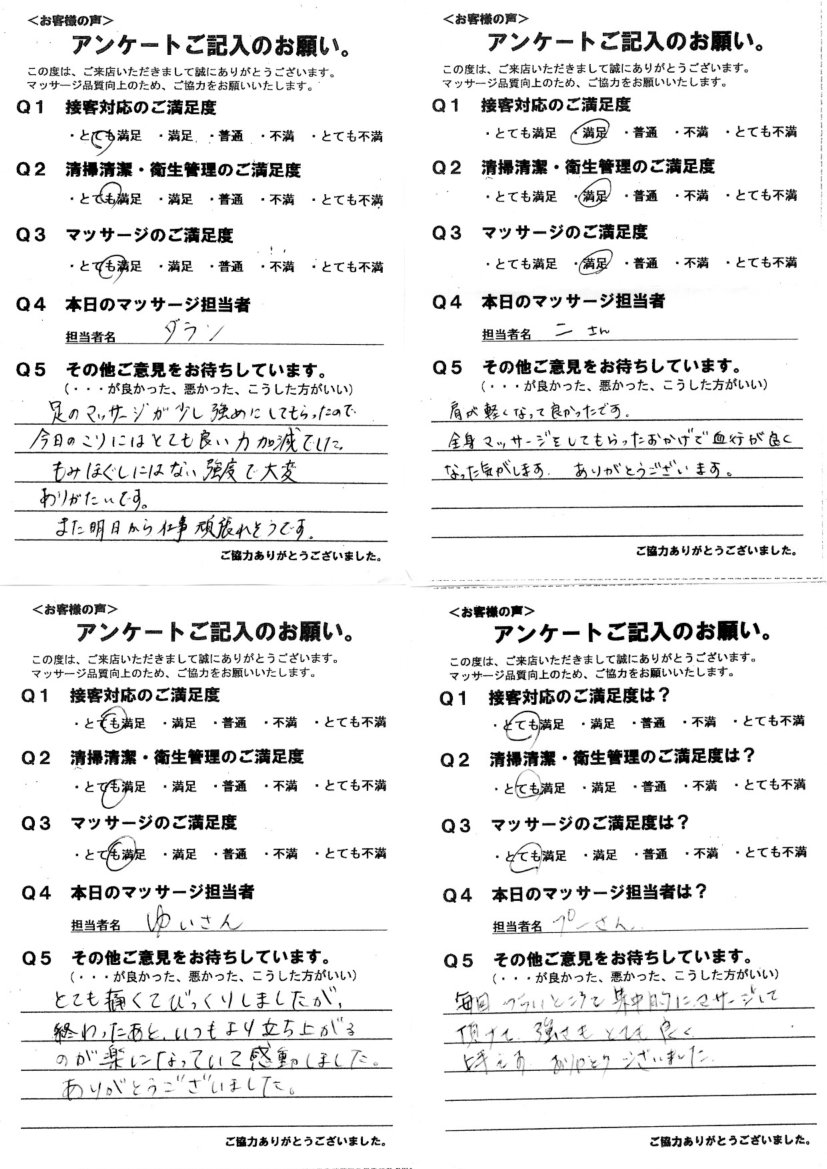 ＜お客様の声＞
アンケートご記入のお願い。
この度は、ご来店いただきまして誠にありがとうございます。
マッサージ品質向上のため、ご協力をお願いいたします。
Q１ 接客対応のご満足度
・とても満足 ・満足 ・普通 ・不満 ・とても不満
Q２ 清掃清潔・衛生管理のご満足度
・とても満足 ・満足 ・普通 ・不満 ・とても不満
Q３ マッサージのご満足度
・とても満足 ・満足 ・普通 ・不満 ・とても不満
Q４ 本日のマッサージ担当者
担当者名 ダラン
Q５ その他ご意見をお待ちしています。
（・・・が良かった、悪かった、こうした方がいい）
足のマッサージが少し強めにしてもらったので
今日のこりにはとても良い力加減でした。
もみほぐしにはない強度で大変
ありがたいです。
また明日から仕事頑張れそうです。
ご協力ありがとうございました。
＜お客様の声＞
アンケートご記入のお願い。
この度は、ご来店いただきまして誠にありがとうございます。
マッサージ品質向上のため、ご協力をお願いいたします。
Q１ 接客対応のご満足度
・とても満足 ・満足 ・普通 ・不満 ・とても不満
Q２ 清掃清潔・衛生管理のご満足度
・とても満足 ・満足 ・普通 ・不満 ・とても不満
Q３ マッサージのご満足度
・とても満足 ・満足 ・普通 ・不満 ・とても不満
Q４ 本日のマッサージ担当者
担当者名 ニさん
Q５ その他ご意見をお待ちしています。
（・・・が良かった、悪かった、こうした方がいい）
肩が軽くなって良かったです。
全身マッサージをしてもらったおかげで血行が良く
なった気がします。ありがとうございます。
ご協力ありがとうございました。
＜お客様の声＞
アンケートご記入のお願い。
この度は、ご来店いただきまして誠にありがとうございます。
マッサージ品質向上のため、ご協力をお願いいたします。
Q１ 接客対応のご満足度
・とても満足 ・満足 ・普通 ・不満 ・とても不満
Q２ 清掃清潔・衛生管理のご満足度
・とても満足 ・満足 ・普通 ・不満 ・とても不満
Q３ マッサージのご満足度
・とても満足 ・満足 ・普通 ・不満 ・とても不満
Q４ 本日のマッサージ担当者
担当者名 ゆいさん
Q５ その他ご意見をお待ちしています。
（・・・が良かった、悪かった、こうした方がいい）
とても痛くてびっくりしましたが、
終わったあと、いつもより立ち上がる
のが楽になっていて感動しました。
ありがとうございました。
ご協力ありがとうございました。
＜お客様の声＞
アンケートご記入のお願い。
この度は、ご来店いただきまして誠にありがとうございます。
マッサージ品質向上のため、ご協力をお願いいたします。
Q１ 接客対応のご満足度は？
・とても満足 ・満足 ・普通 ・不満 ・とても不満
Q２ 清掃清潔・衛生管理のご満足度は？
・とても満足 ・満足 ・普通 ・不満 ・とても不満
Q３ マッサージのご満足度は？
・とても満足 ・満足 ・普通 ・不満 ・とても不満
Q４ 本日のマッサージ担当者は？
担当者名 プーさん
Q５ その他ご意見をお待ちしています。
（・・・が良かった、悪かった、こうした方がいい）
毎回 つらいところを 集中的にマッサージして
頂けて、強さも とても 良く
ありがとう ございました。
ご協力ありがとうございました。